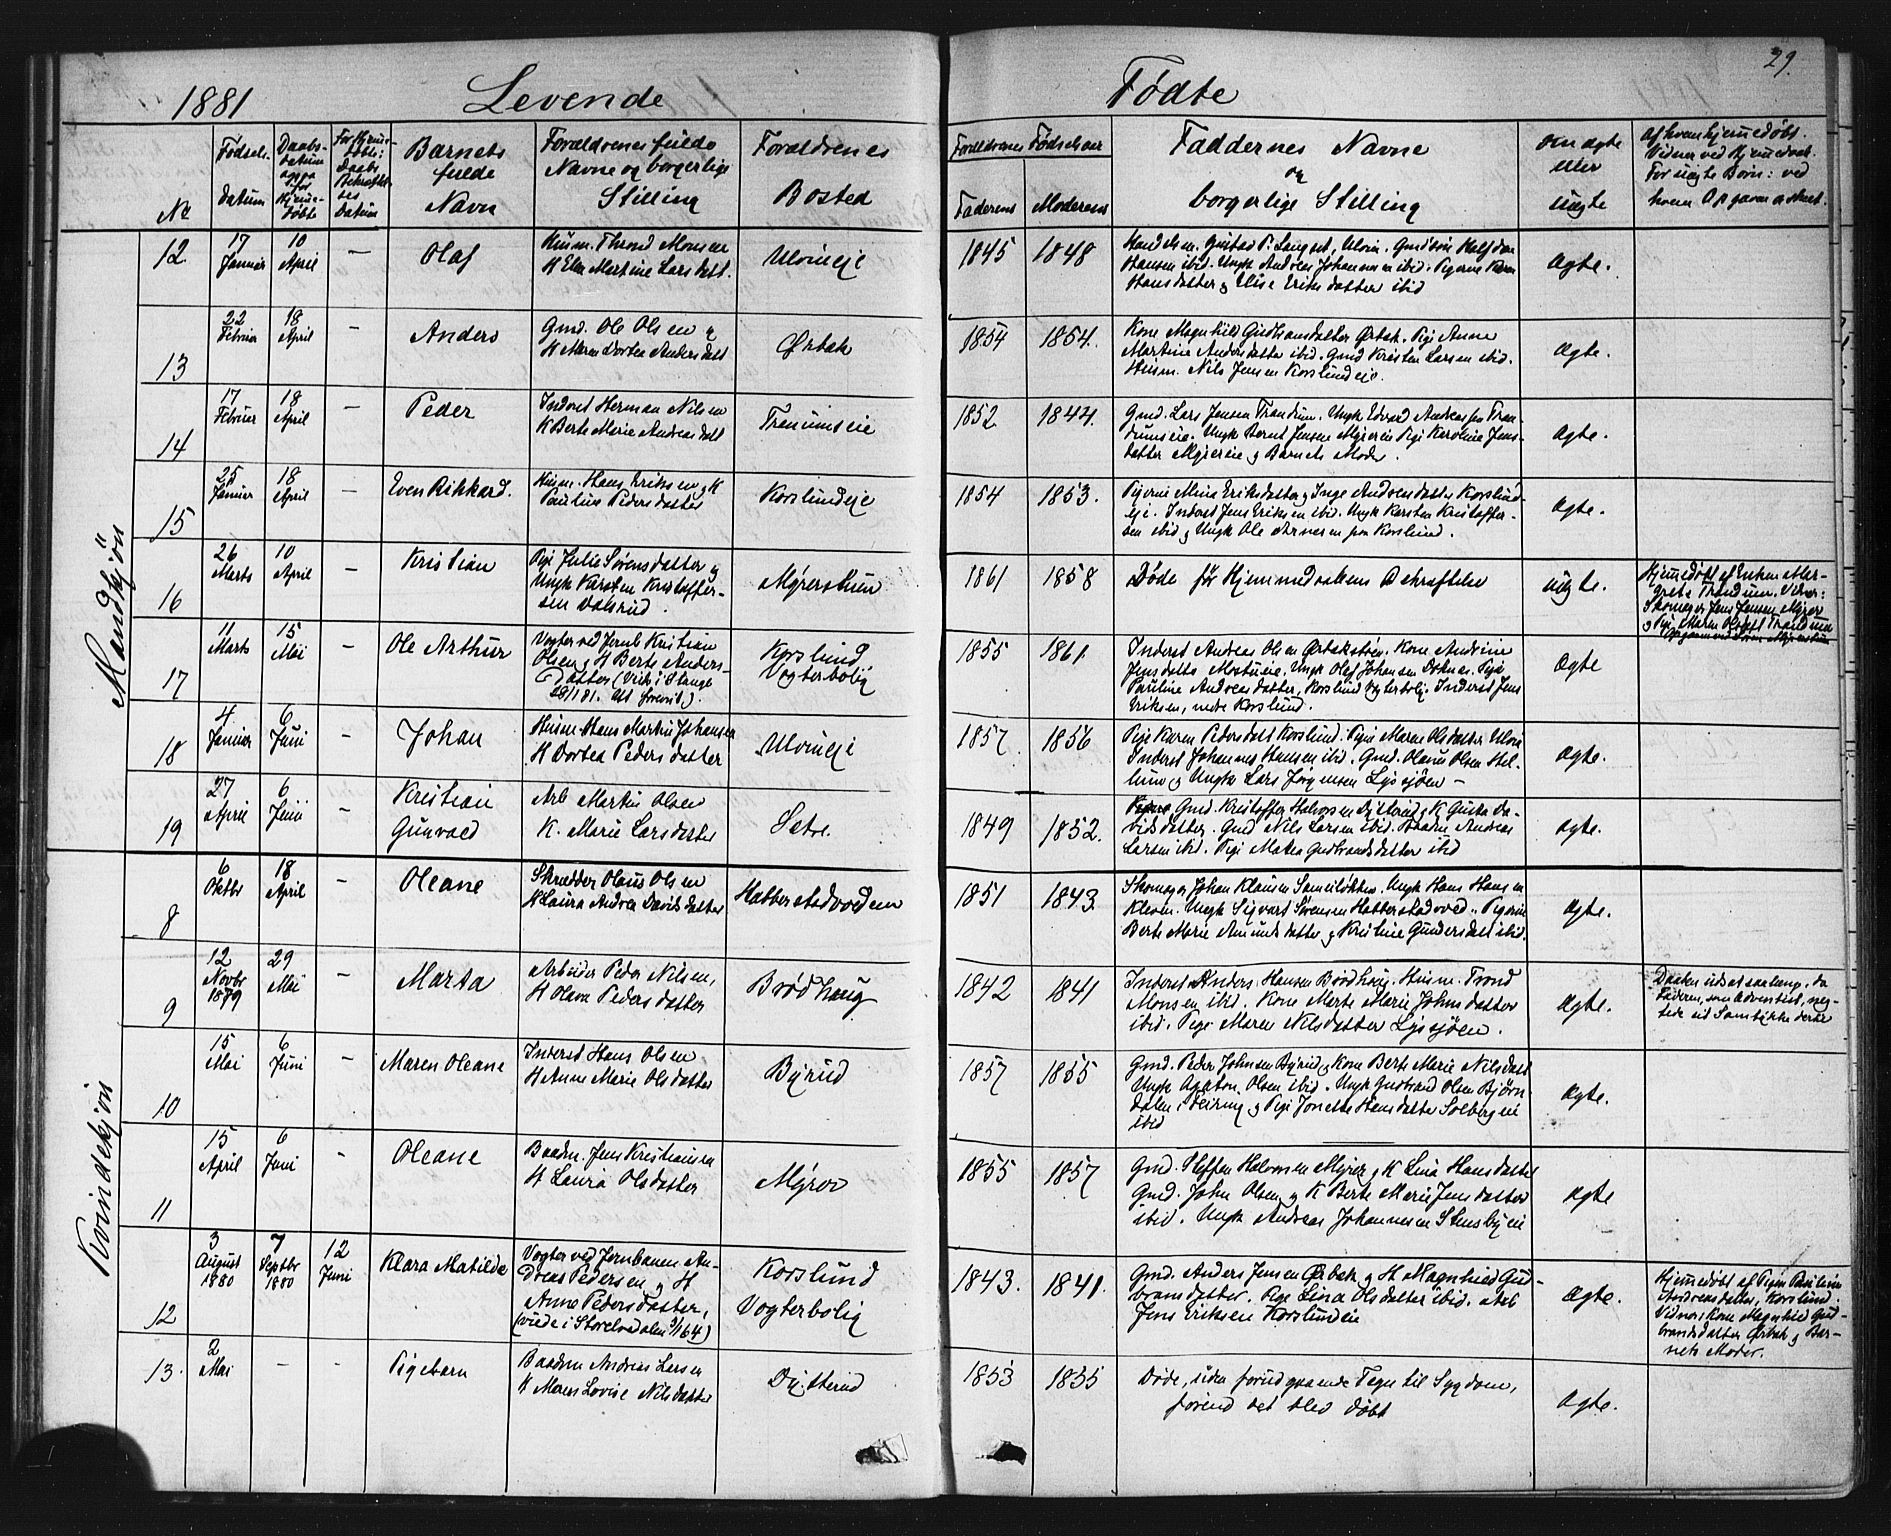 29.
1881 Levende Fødte
No
Fødsels-
datum
Daabs-
datum
Barnets
fulde
Navn
Forældrenes fulde
Navne og borgerlige
Stilling
Forældrenes
Bosted
Forældrenes Fødselsaar
Faderens Moderens
Faddernes Navne
og
borgerlige Stilling
Om ægte
eller
uægte
Af hvem hjemmedøbt.
Vidner ved Hjemmedaab.
For uægte Børn: ved
hvem Opgaven er skeet.
Mandkjön
12
17
Januar
10
April
–
Olaf
Husm. Thrond Monsen
H Elen Martine Larsdatt.
Ulvineje
1845 1848
Handelsm. Gustav P. Langset, Ulvin. Gmdsøn Halfdan
Hansen ibid. Ungk Andreas Johannesen ibid. Pigerne Karen
Hansdatter og Elise Eriksdatter ibid
Ægte.
13
22
Februar
18
April
–
Anders
Gmd. Ole Olsen og
H Maren Dortea Andersdatt
Ørbæk
1854 1854.
Kone Magnhild Gudbransdatter Ørbæk. Pige Anne
Martine Andersdatter ibid. Gmd Kristen Larsen ibid.
Husm. Nils Jensen Korslundeie.
Ægte.
14
17
Februar
18
April
–
Peder
Inderst Herman Nilsen
K Berte Marie Andreasdatt
Tranumseie
1852 1844.
Gmd. Lars Jensen Trandum. Ungk Edvard Andreassen Tran-
dumseie. Ungk Bernt Jensen Myrereie Pige Karoline Jens-
datter Myrereie og Barnets Moder.
Ægte.
15
25
Januar
18
April
–
Even Rikkard.
Husm. Hans Eriksen og K
Pauline Pedersdatter
Korslundeje
1854 1853.
Pigerne Mina Eriksdatter og Inge Andreasdatter Korslund-
eje. Inderst Jens Eriksen ibid. Ungk Karsten Kristoffer-
sen ibid og Ungk Ole Arnesen paa Korslund.
Ægte.
16
26
Marts
10
April
–
Kristian
Pige Julie Sørensdatter og
Ungk Karsten Kristoffer-
sen Dalsrud.
Myrerstuen
1861 1858
Døde før Hjemmedaabens Bekræftelse
Uægte.
Hjemmedøbt af Enken Mar-
grete Trandum. Vidner:
Skomager Jens Jensen Myrer
og Pige Maren Olsdatt Trandum
17
11
Marts
15
Mai
–
Ole Arthur
Vogter ved Jernb Kristian
Olsen og H Berte Anders-
datter (Viede i Stange
28/1 81.
Korslund
Vogterbolig
1855 1861.
Inderst Andreas Olsen Ørbækstøen. Kone Andrine
Jensdatter Morstueie. Ungk Olaf Johansen Doknæs. Pige
Pauline Andreasdatter, Korslund Vogterbolig. Inderst Jens
Eriksen, nedre Korslund.
Ægte
18
4
Januar
6
Juni
–
Johan
Husm. Hans Martin Johansen
H Dortea Pedersdatter
Ulvineje
1857 1856
Pige Karen Pedersdatt Korslund. Pige Maren Olsdatter Ulvin
Inderst Johannes Hansen ibid. Gmd. Olaus Olsen Hel-
lum og Ungk Lars Jørgensen Lysjøen –
Ægte.
19
27
April
6
Juni
Kristian
Gunvald
Arb Martin Olsen
K. Marie Larsdatter
Sætre.
1849 1852.
Gmd. Kristoffer Halvorsen Dytterud og K Gusta Da-
vidsdatter. Gmd Nils Larsen ibid. Baadm Andreas
Larsen ibid. Pige Matea Gudbrandsdatter ibid
Ægte.
Kvindekjön
8
6
Oktbr
18
April
–
Oleane
Skrædder Olaus Olsen
K Laura Andrea Davidsdatter
Habberstadvoden
1851 1843.
Skomager Johan Klausen Samuelsløkken. Ungk Hans Hansen
Kleven. Ungk Sigvart Sørensen Habberstadvod. Pigerne
Berte Marie Amundsdatter og Kristine Gundersdatt ibid.
Ægte.
9
12
Novbr
1879
29
Mai
–
Marta
Arbeider Peder Nilsen,
H Olava Pedersdatter
Brødhaug
1842 1841
Inderst Anders Hansen Brødhaug. Husm. Trond
Monsen ibid. Kone Marte Marie Johnsdatter
ibid. Pige Maren Nilsdatter Lysjøen.
Ægte.
Daaben udsat saalænge, da
Faderen, som Adventist, neg-
tede sit Samtykke dertil
10
15
Mai
6
Juni
–
Maren Oleane
Inderst Hans Olsen
H Anne Marie Olsdatter
Byrud
1857 1855
Gmd. Peder Johnsen Byrud og Kone Berte Marie Nilsdatt
Ungk Agaton Olsen ibid. Ungk Gudbrand Olsen Bjørn-
dalen i Feiring og Pige Jonette Hansdatter Solbergeie
ibid
Ægte.
11
15
April
6
Juni
–
Oleane
Baadm. Jens Kristiansen
H Laura Olsdatter
Myrer
1855 1857
Gmd. Steffen Halvorsen Myrer og K Lina Hansdatter
Gmd. John Olsen og K Berte Marie Jensdatter
ibid. Ungk Andreas Johannesen Stensbyeie
Ægte
12
3
August
1880
7
Septbr
1880
12
Juni
Klara Matilde
Vogter ved Jernbanen An-
dreas Pedersen og H
Anne Pedersdatter,
(viede i Storelvedalen 9/1 64)
Korslund
Vogterbolig
1843. 1841.
Gmd. Anders Jensen Ørbæk og H Magnhild Gud-
bransdatter. Pige Lina Olsdatter ibid. Arb
Jens Eriksen Korslundeie
Ægte.
Hjemmedøbt af Pigen Pauline
Andreasdatter, Korslund.
Vidner: Kone Magnhild Gud-
brandsdatter Ørbæk og Bar-
nets Moder.
13.
2
Mai
–
–
Pigebarn
Baadm Andreas Larsen
K Maren Lovise Nilsdatter
Dytterud
1853 1855
Døde, uden forudgaaende Tegn til Sygdom,
førend det blev døbt
Ægte.